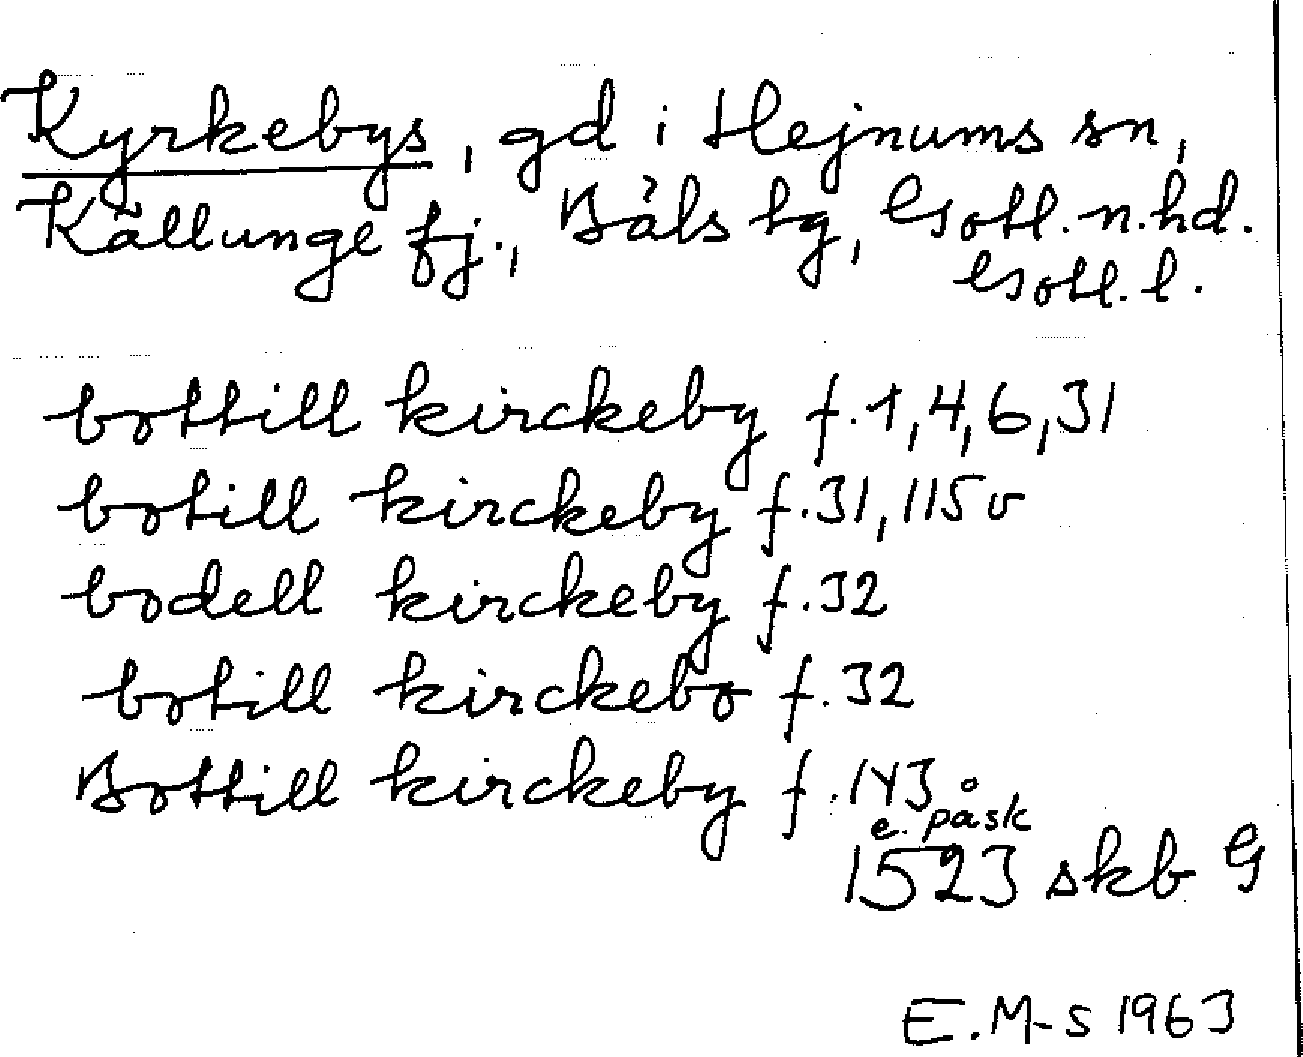 Kyrkebys, gd i Hejnums sn,
Källunge fj., Bäls tg, Gotl. n. hd.
Gotl. l.
bottill kirckeby f. 1, 4, 6, 31
botill kirckeby f. 31, 115 v
bodell kirckeby f. 32
botill kirckebo f. 32
Bottill kirckeby f. 143
e. påsk
1523 skb G
E. M-s 1963